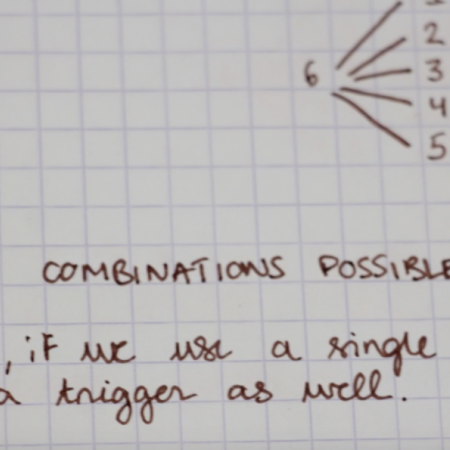 2
6
3
4
5
COMBINATIONS POSSIBLE
, if we use a single
a trigger as well.